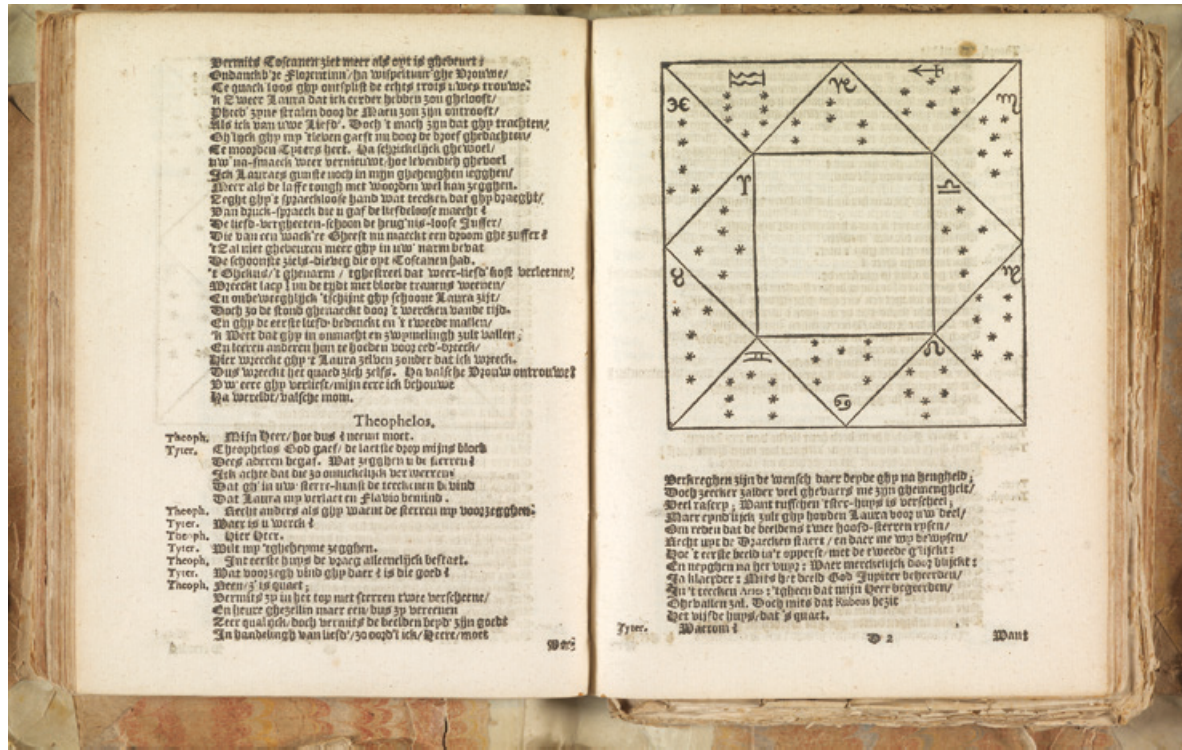 Vermits Toscanen ziet meer als oyt is ghebeurt;
Ondanckb're Florentinn'/ha wispeltuur'ghe Vrouwe/
Te quack loos ghy ontsplist de echts trois uwes trouwe?
'k Zweer Laura dat ick eerder hebben zou ghelooft/
Pheed zyne stralen door de Maen zou zijn ontrooft/
Als ick van uwe Liefd'. Doch 't mach zijn dat ghy trachten/
Oh lijck ghy my 't leven gaeft nu door de droef ghedachten/
Te moorden Tyters hert. Ha schrickelijck ghewoel/
uw' na-smaeck weer vernieuwt, hoe levendich ghevoel
Ick Lauraes gunste noch in mijn gheheughen legghen/
Meer als de laffe tongh met woorden wel kan zegghen.
Zeght ghy't spraeckloose hand wat teecken dat ghy draeght/
Van druck-spraeck die u gaf de liefdeloose maecht?
De liefd-vergheeten-schoon de heug'nis-loose Juffer/
Die van een wack're Gheest nu maeckt een droom'ghe zuffer?
't Zal niet ghebeuren meer ghy in uw' narm bevat
De schoonste ziels-dievegh die oyt Toscanen had.
't Ghekus/'t ghenarm / tghestreel dat weer-liefd' kost verleenen?
Wreeckt lacy! nu de tijdt met bloede tranens weenen/
En onbeweeghlijck 'tschijnt ghy schoone Laura zijt/
Doch zo de stond ghenaeckt door 't wercken vande tijd.
En ghy de eerste liefd' bedenckt en 't tweede mallen/
'k Weet dat ghy in onmacht en zwymelingh zult vallen;
En leeren anderen hem te hoeden voor eed-breeck/
Hier wreeckt ghy 't Laura zelven zonder dat ick wreeck.
Dus wreeckt het quaed zich zelfs. Ha valsche Vrouw ontrouwe!
Uw eere ghy verliest/mijn eere ick behouwe
Ha wereldt/valsche mom.
Theophelos.
Theoph. Mijn Heer/hoe dus? neemt moet.
Tyter. Theophelos God gaef/de laetste drop mijns bloed
Dees aderen begaf. Wat zegghen u de sterren?
Ick achte dat die zo onnickelijck verwerren
Dat gh' in uw' sterre-kunst de teeckenen bevind
Dat Laura my verlaet en Flavio bemind.
Theoph. Recht anders als ghy waent de sterren my voorzegghen.
Tyter. Waer is u werck?
Theoph. Hier Heer.
Tyter. Wilt my 'tgheheyme zegghen.
Theoph. Int eerste huys de vraeg alleenelijck bestaet.
Tyter. Wat voorzegh vind ghy daer? is die goed?
Theoph. Neen/z' is quaet;
Vermits zy in het top met sterren twee verscheene/
En heure ghezellin maer een/dus zy vereenen
Zeer qualijck/doch vermits de beelden beyd' zijn goedt
In handelingh van liefd'/zo oord'l ick/Heere/moet
Ver-
♓
♒
♑
♐
♏
♈
♎
♉
♍
♊
♋
♌
Verkreghen zijn de wensch daer beyde ghy na hengheld;
Doch zeecker zalder veel ghevaers me zijn ghemenghelt/
Veel rasery; Want tusschen 'tster-huys is verscheel;
Maer eynd'lijck zult ghy houden Laura voor u deel/
Om reden dat de beeldens twee hoofd-sterren rysen/
Recht uyt de Draecken staert/en daer me wy bewysen/
Hoe 't eerste beeld in't opperst/met de tweede g'lijckt:
En neyghen na het vuyr: Waer merckelijck door blijckt:
Ja klaerder: Mits het beeld God Jupiter beheerden/
In 't teecken Aries: 'tgheen dat mijn Heer begeerden/
Ghevallen zal. Doch mits dat Rubeus bezit
Het vijfde huys/dat's quaet.
Tyter. Waerom?
D 2
Want